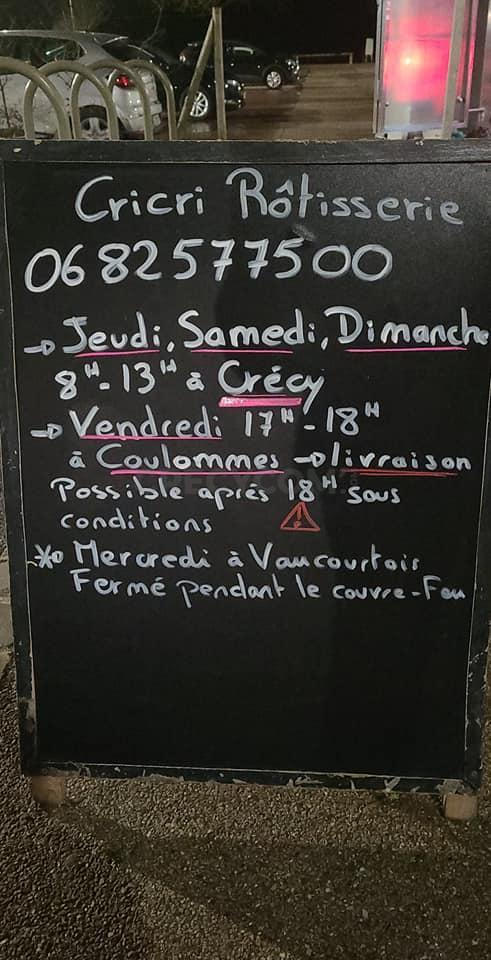 Cricri Rôtisserie
0682577500
→ Jeudi, Samedi, Dimanche
8H-13H à Crécy
→ Vendredi 17H-18H
à Coulommes → livraison
Possible aprés 18H sous
conditions
* Mercredi à Vaucourtois
Fermé pendant le couvre-Feu